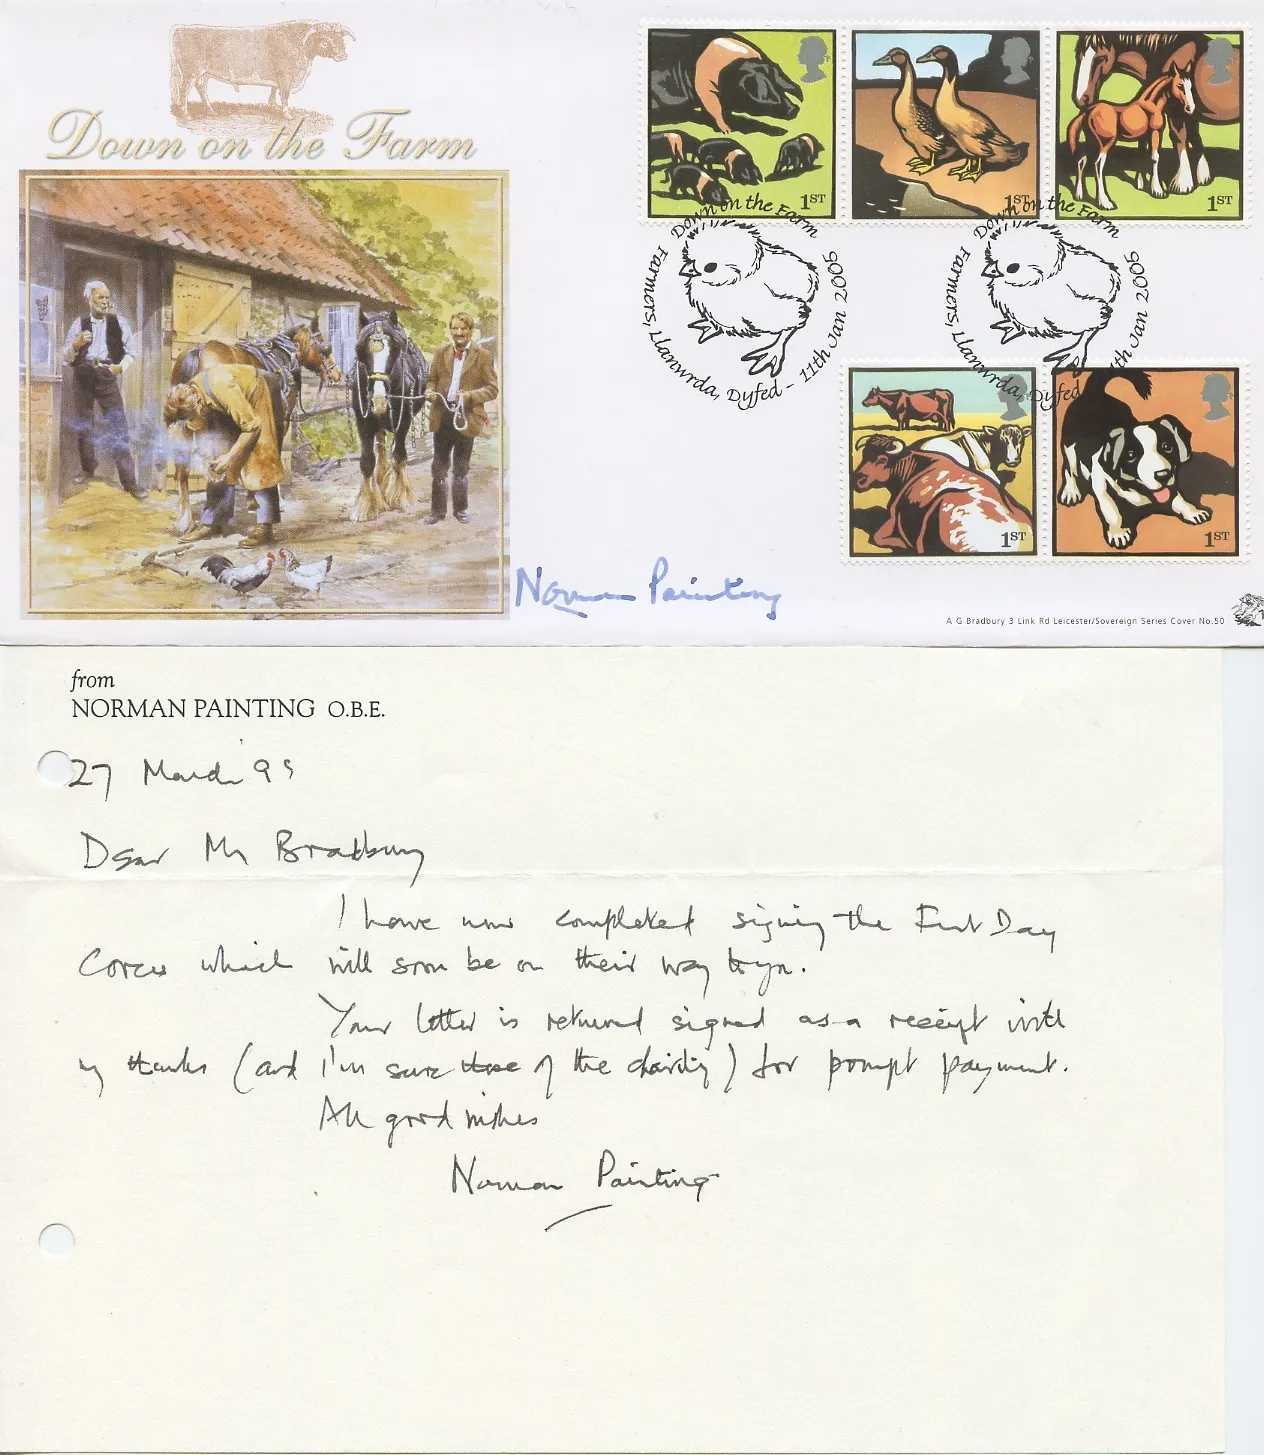 Down on the Farm
1ST
1ST
1ST
Down on the Farm
Farmers, Llanwrda, Dyfed - 11th Jan 2005
Down on the Farm
Farmers, Llanwrda, Dyfed - 11th Jan 2005
1ST
1ST
Norman Painting
A G Bradbury 3 Link Rd Leicester/Sovereign Series Cover No.50
from
NORMAN PAINTING O.B.E.
27 March '99
Dear Mr Bradbury
I have now completed signing the First Day
Covers which will soon be on their way to you.
Your letter is returned signed as a receipt with
my thanks (and I'm sure those of the charity) for prompt payment.
All good wishes
Norman Painting